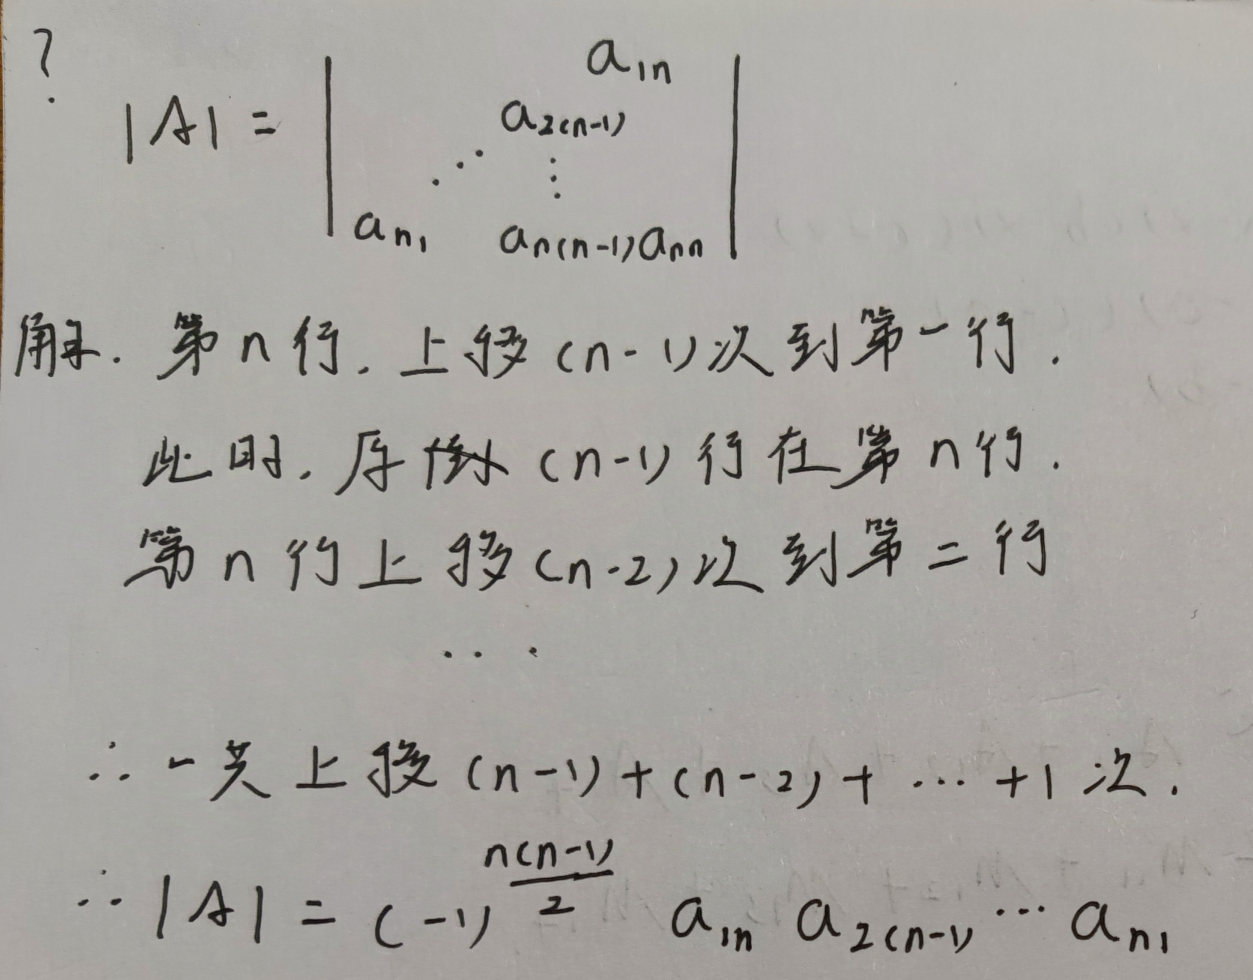 ?
a₁ₙ
|A| = | a₂₍ₙ₋₁₎ |
⋰ ⋮
aₙ₁ aₙ₍ₙ₋₁₎ aₙₙ
解. 第n行. 上移(n-1)次到第一行.
此时. 原 (n-1)行在第n行.
第n行上移(n-2)次到第二行
...
∴ 一共上移(n-1)+(n-2)+…+1次.
∴ |A| = (-1)^{\frac{n(n-1)}{2}} a₁ₙ a₂₍ₙ₋₁₎ … aₙ₁